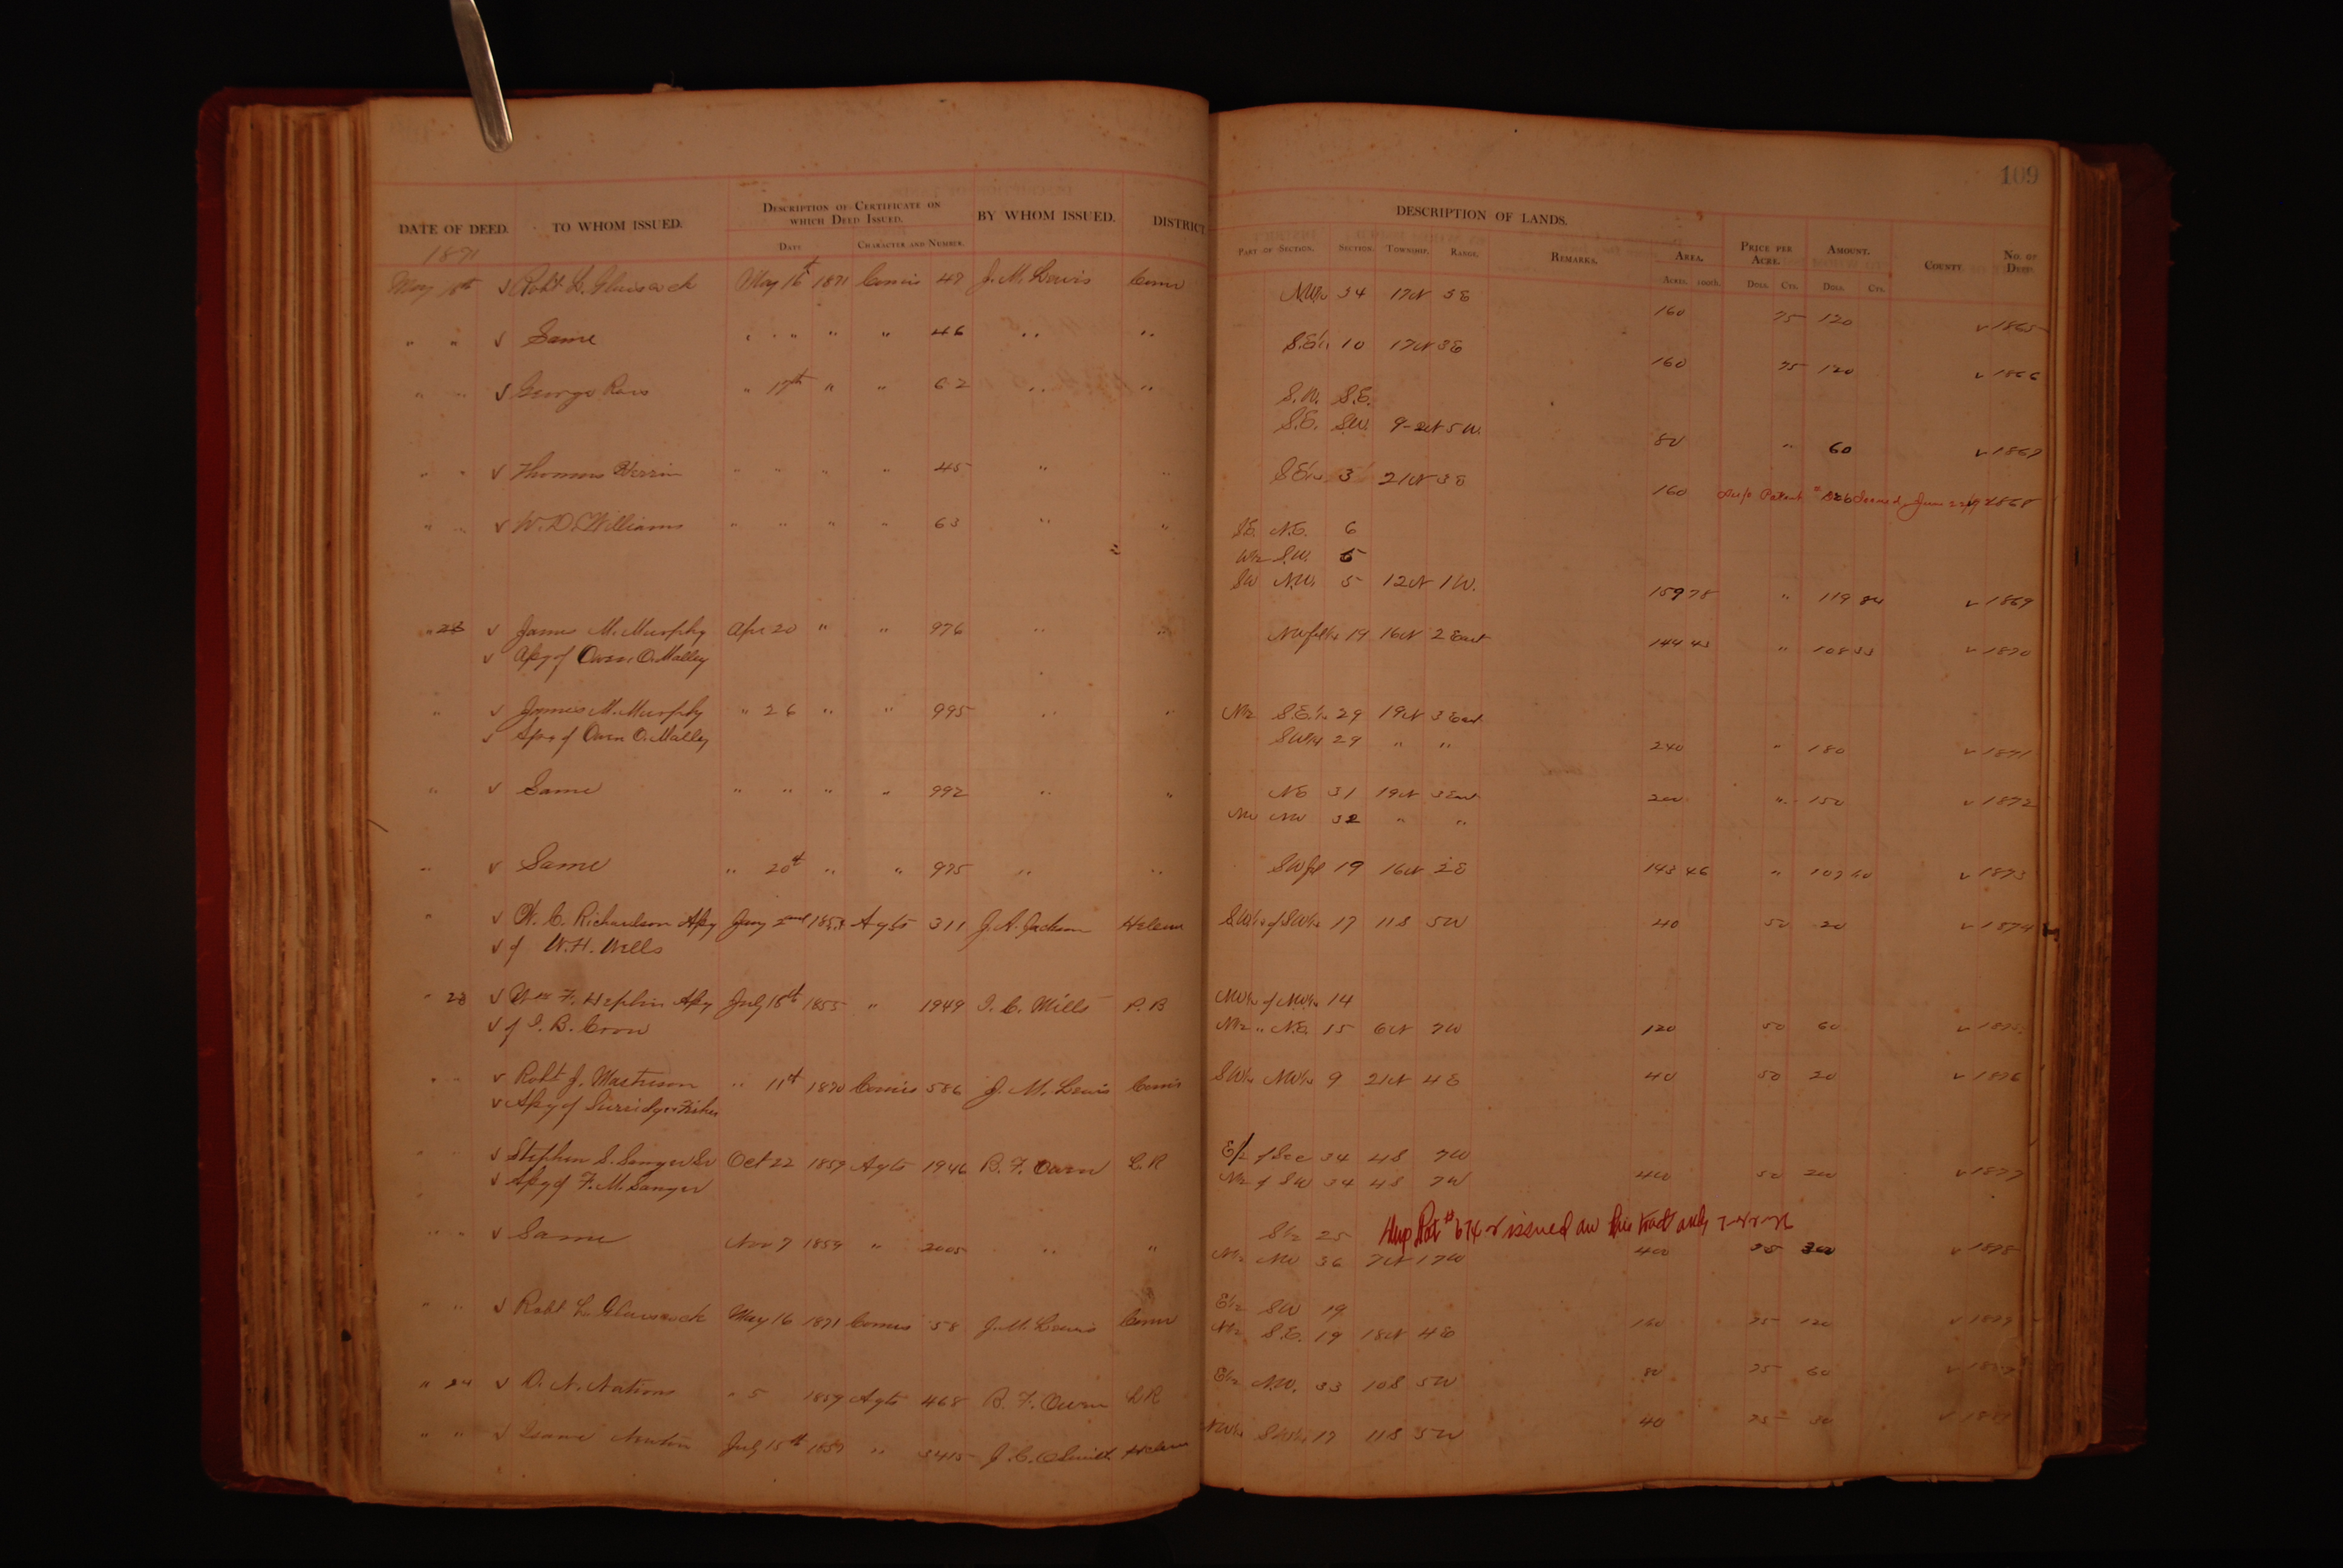 109
DATE OF DEED. TO WHOM ISSUED. DESCRIPTION OF CERTIFICATE ON WHICH DEED ISSUED. BY WHOM ISSUED. DISTRICT DESCRIPTION OF LANDS. PRICE PER ACRE. AMOUNT. COUNTY NO. OF DEED
DATE CHARACTER AND NUMBER. PART OF SECTION. SECTION. TOWNSHIP. RANGE. REMARKS. AREA.
ACRES. 100th. DOLL. CTS. DOLL. CTS.
1871
May 18th v Robt L. Glasscock May 16th 1871 Comis 47 J. M. Lewis Comr N.W¼ 34 17N 3E 160 75 120 v 1865
" " v Same " " " " 46 " " S.E¼ 10 17N 3E 160 75 120 v 1866
" " v George Ross " 17th " " 62 " " S.W. S.E.
S.E. S.W. 9-2N 5W. 80 " 60 v 1867
" " v Thomas " " " " 45 " " S.E¼ 3 21N 3E 160 Dup Patent 1868
" " v W. D. Williams " " " " 63 " " S.E. N.E. 6
W½ S.W. 5
SW N.W. 5 12N 1W. 159 78 " 119 84 v 1869
" 23 v James M. Murphy Apr 20 " " 976 " " NWfrl¼ 19 16N 2 East 144 43 " 108 33 v 1870
v Asgy of Owen O. Malley
" v James M. Murphy " 26 " " 995 " " N½ S.E.¼ 29 19N 3 East
v Asgy of Owen O. Malley SW¼ 29 " " 240 " 180 v 1871
" v Same " " " " 992 " " NE 31 19N 3 East 200 " 150 v 1872
NW NW 32 " "
" v Same " 20th " " 975 " " SWfrl 19 16N 2E 143 46 " 107 60 v 1873
" v W. C. Richardson Asgy Jany 2nd Agts 311 J. A. Jackson Helena SW¼ of SW¼ 17 11S 5W 40 50 20 v 1874
v of W. H. Wells
" 23 v Wm F. Asgy July 18th 1855 " 1949 I. C. Mills P. B NW¼ of NW¼ 14
v of I. B. Crow N½ " N.E. 15 6N 7W 120 50 60 v 1875
" " v Robt J. Masterson " 11th 1870 Comis 586 J. M. Lewis Comis SW¼ NW¼ 9 21N 4E 40 50 20 v 1876
v Asgy of
" " v Stephen S. Sanger Sr Oct 22 1859 Agts 1946 B. F. Owen L. R E½ of Sec 34 4S 7W
v Asgy of F. M. Sanger N½ of SW 34 4S 7W 400 50 200 v 1877
" " v Same Nov 7 1859 " 2005 " " S½ 25 Dup Pat # issued on this tract only
N½ NW 36 7N 17W 400 75 300 v 1878
" " v Robt L. Glasscock May 16 1871 Comis 58 J. M. Lewis Comr E½ SW 19
N½ S.E. 19 18N 4E 160 75 120 v 1879
" 24 v O. N. Nations " 5 1859 Agts 468 B. F. Owen LR E½ N.W. 33 10S 5W 80 75 60
" " v Isaac Newton July 15th 1857 " 3415 J. C. O Smith Helena NW¼ SW¼ 17 11S 5W 40 75 30